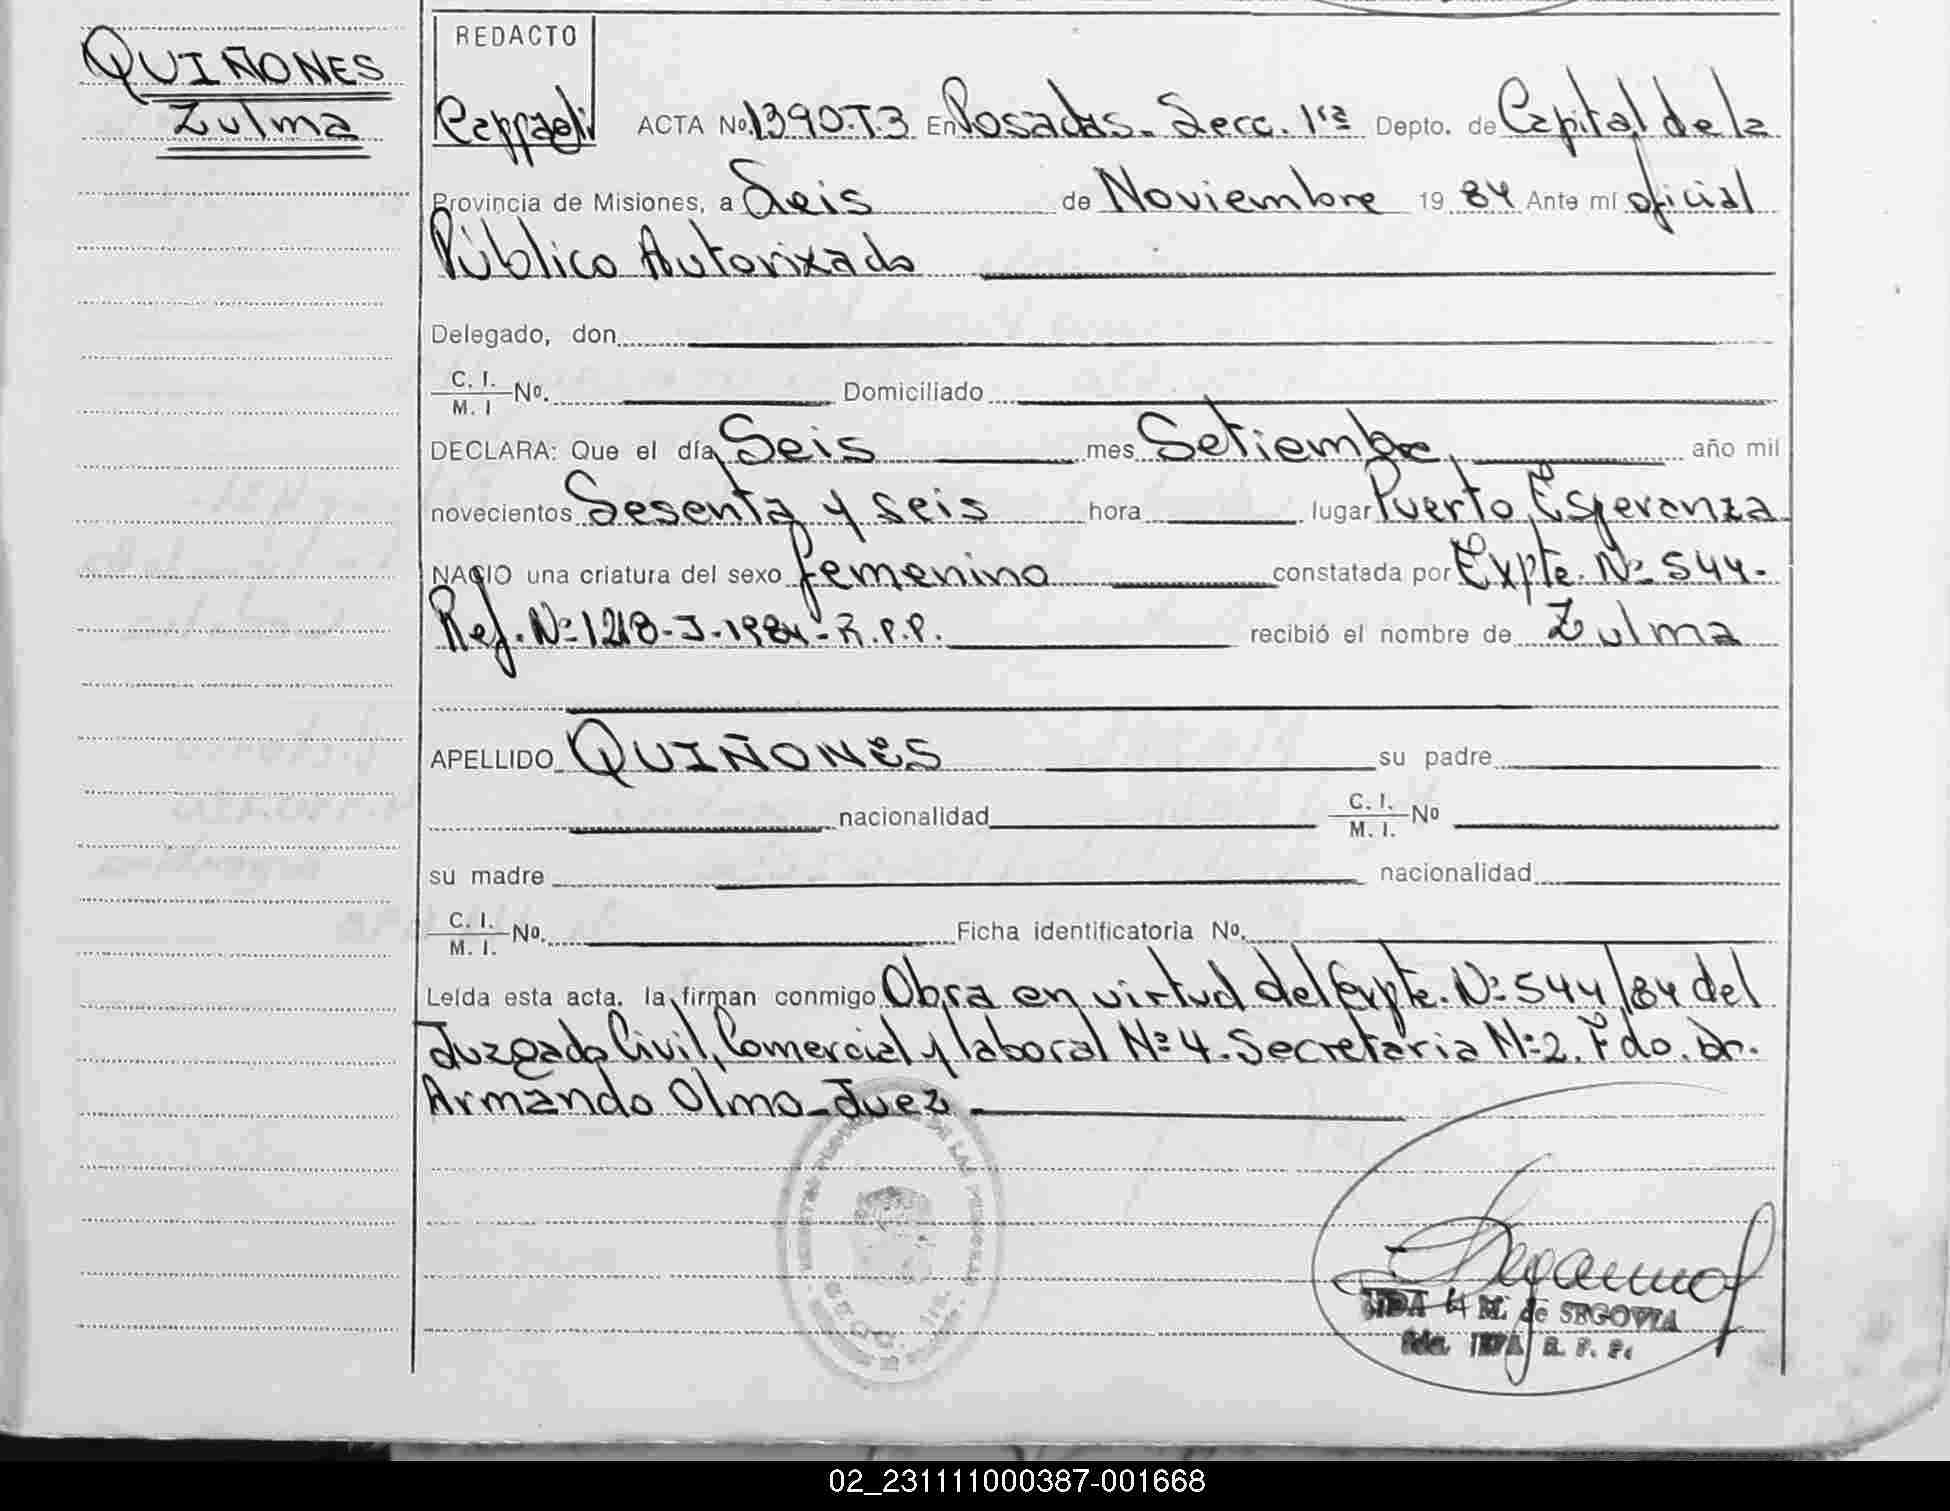 QUIÑONES
Zulma
REDACTO
ACTA No. 1390-T.3 En Posadas. Secc. 1ra Depto. de Capital de la
Provincia de Misiones, a Seis de Noviembre 19 84 Ante mí oficial
Público Autorizado
Delegado, don
C. I. / M. I No. Domiciliado
DECLARA: Que el día Seis mes Setiembre año mil
novecientos Sesenta y seis hora lugar Puerto Esperanza
NACIO una criatura del sexo femenino constatada por Expte. Nº 544-
Ref. Nº 1218-J-1984-R.P.P. recibió el nombre de Zulma
APELLIDO QUIÑONES su padre
nacionalidad C. I. / M. I. No
su madre nacionalidad
C. I. / M. I. No. Ficha identificatoria No.
Leída esta acta. la firman conmigo Obra en virtud del Expte. Nº 544/84 del
Juzgado Civil, Comercial y laboral Nº 4. Secretaria Nº 2. Fdo. Dr.
Armando Olmo-Juez
DE LAS PERSONAS
SECC. 1ra.
M. de SEGOVIA
R. P. P.
02_231111000387-001668